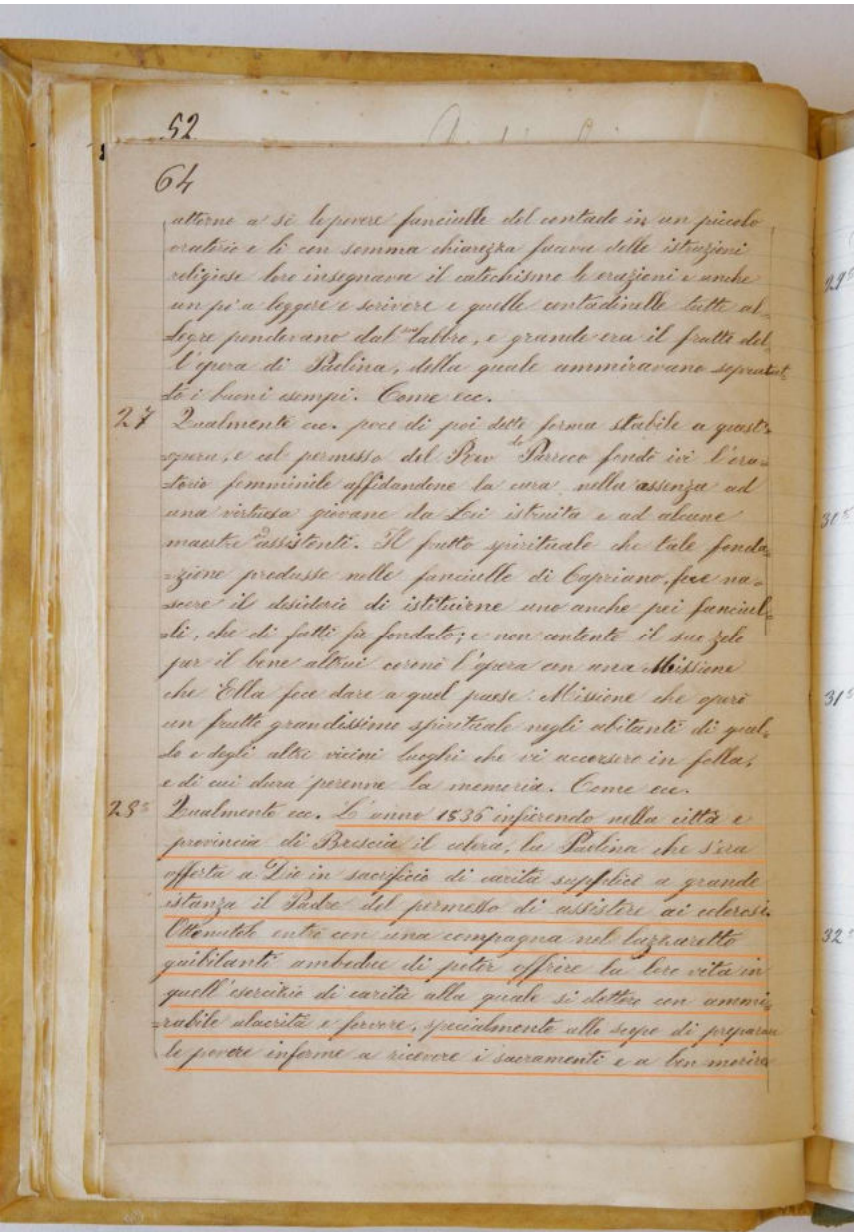 52
64
attorno a sè le povere fanciulle del contado in un piccolo
oratorio e lì con somma chiarezza faceva delle istruzioni
religiose loro insegnava il catechismo le orazioni e anche
un pò a leggere e scrivere e quelle contadinelle tutte al=
legre pendevano dal suo labbro, e grande era il frutto del=
l'opera di Paolina, della quale ammiravano sopratut=
to i buoni esempi. Come ecc.
27 Qualmente ecc. poco di poi dette forma stabile a quest'=
=opera, e col permesso del Rev.do Parroco fondò ivi l'ora=
=torio femminile affidandone la cura nella assenza ad
una virtuosa giovane da Lei istruita e ad alcune
maestre assistenti. Il frutto spirituale che tale fonda=
=zione produsse nelle fanciulle di Capriano, fece na=
=scere il desiderio di istituirne uno anche pei fanciul=
=li, che di fatti fù fondato; e non contento il suo zelo
per il bene altrui coronò l'opera con una Missione
che Ella fece dare a quel paese. Missione che operò
un frutto grandissimo spirituale negli abitanti di quel=
lo e degli altri vicini luoghi che vi accorsero in folla,
e di cui dura perenne la memoria. Come ecc.
28° Qualmente ecc. L'anno 1836 infierendo nella città e
provincia di Brescia il colera, la Paolina che s'era
offerta a Dio in sacrificio di carità supplicò a grande
istanza il Padre del permesso di assistere ai colerosi.
Ottenutolo entrò con una compagna nel lazzaretto
guibilanti ambedue di poter offrire la loro vita in
quell'esercizio di carità alla quale si dettero con ammi=
=rabile alacrità e fervore, specialmente allo scopo di preparare
le povere inferme a ricevere i sacramenti e a ben morire
29°
31°
31°
32°